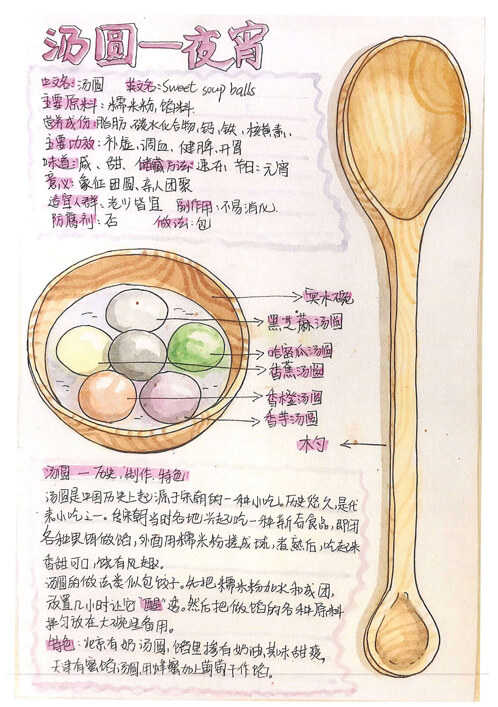 汤圆一夜宵
中文名:汤圆 英文名:Sweet soup balls
主要原料:糯米粉,馅料
营养成份:脂肪、碳水化合物,钙、铁、核黄素、
主要功效:补虚,调血、健脾、开胃
味道:咸、甜、储藏方法:速冻 节日:元宵
意义:象征团圆、亲人团聚
适宜人群:老少皆宜 副作用:不易消化
防腐剂:否 做法:包
实木碗
黑芝麻汤圆
哈密瓜汤圆
香蕉汤圆
香橙汤圆
香芋汤圆
木勺
汤圆 — 历史,制作,特色
汤圆是中国历史上起源于宋朝的一种小吃。历史悠久,是代
表小吃之一。宋朝当时各地兴起吃一种新奇食品,即用
各种果饵做馅,外面用糯米粉搓成球,煮熟后,吃起来
香甜可口,饶有风趣。
汤圆的做法类似包饺子。先把糯米粉加水和成团,
放置几小时让它"醒"透。然后把做馅的各种原料
拌匀放在大碗里备用。
特色:北京有奶汤圆,馅里掺有奶油,其味甜爽。
天津有蜜馅汤圆,用蜂蜜加上葡萄干作馅。